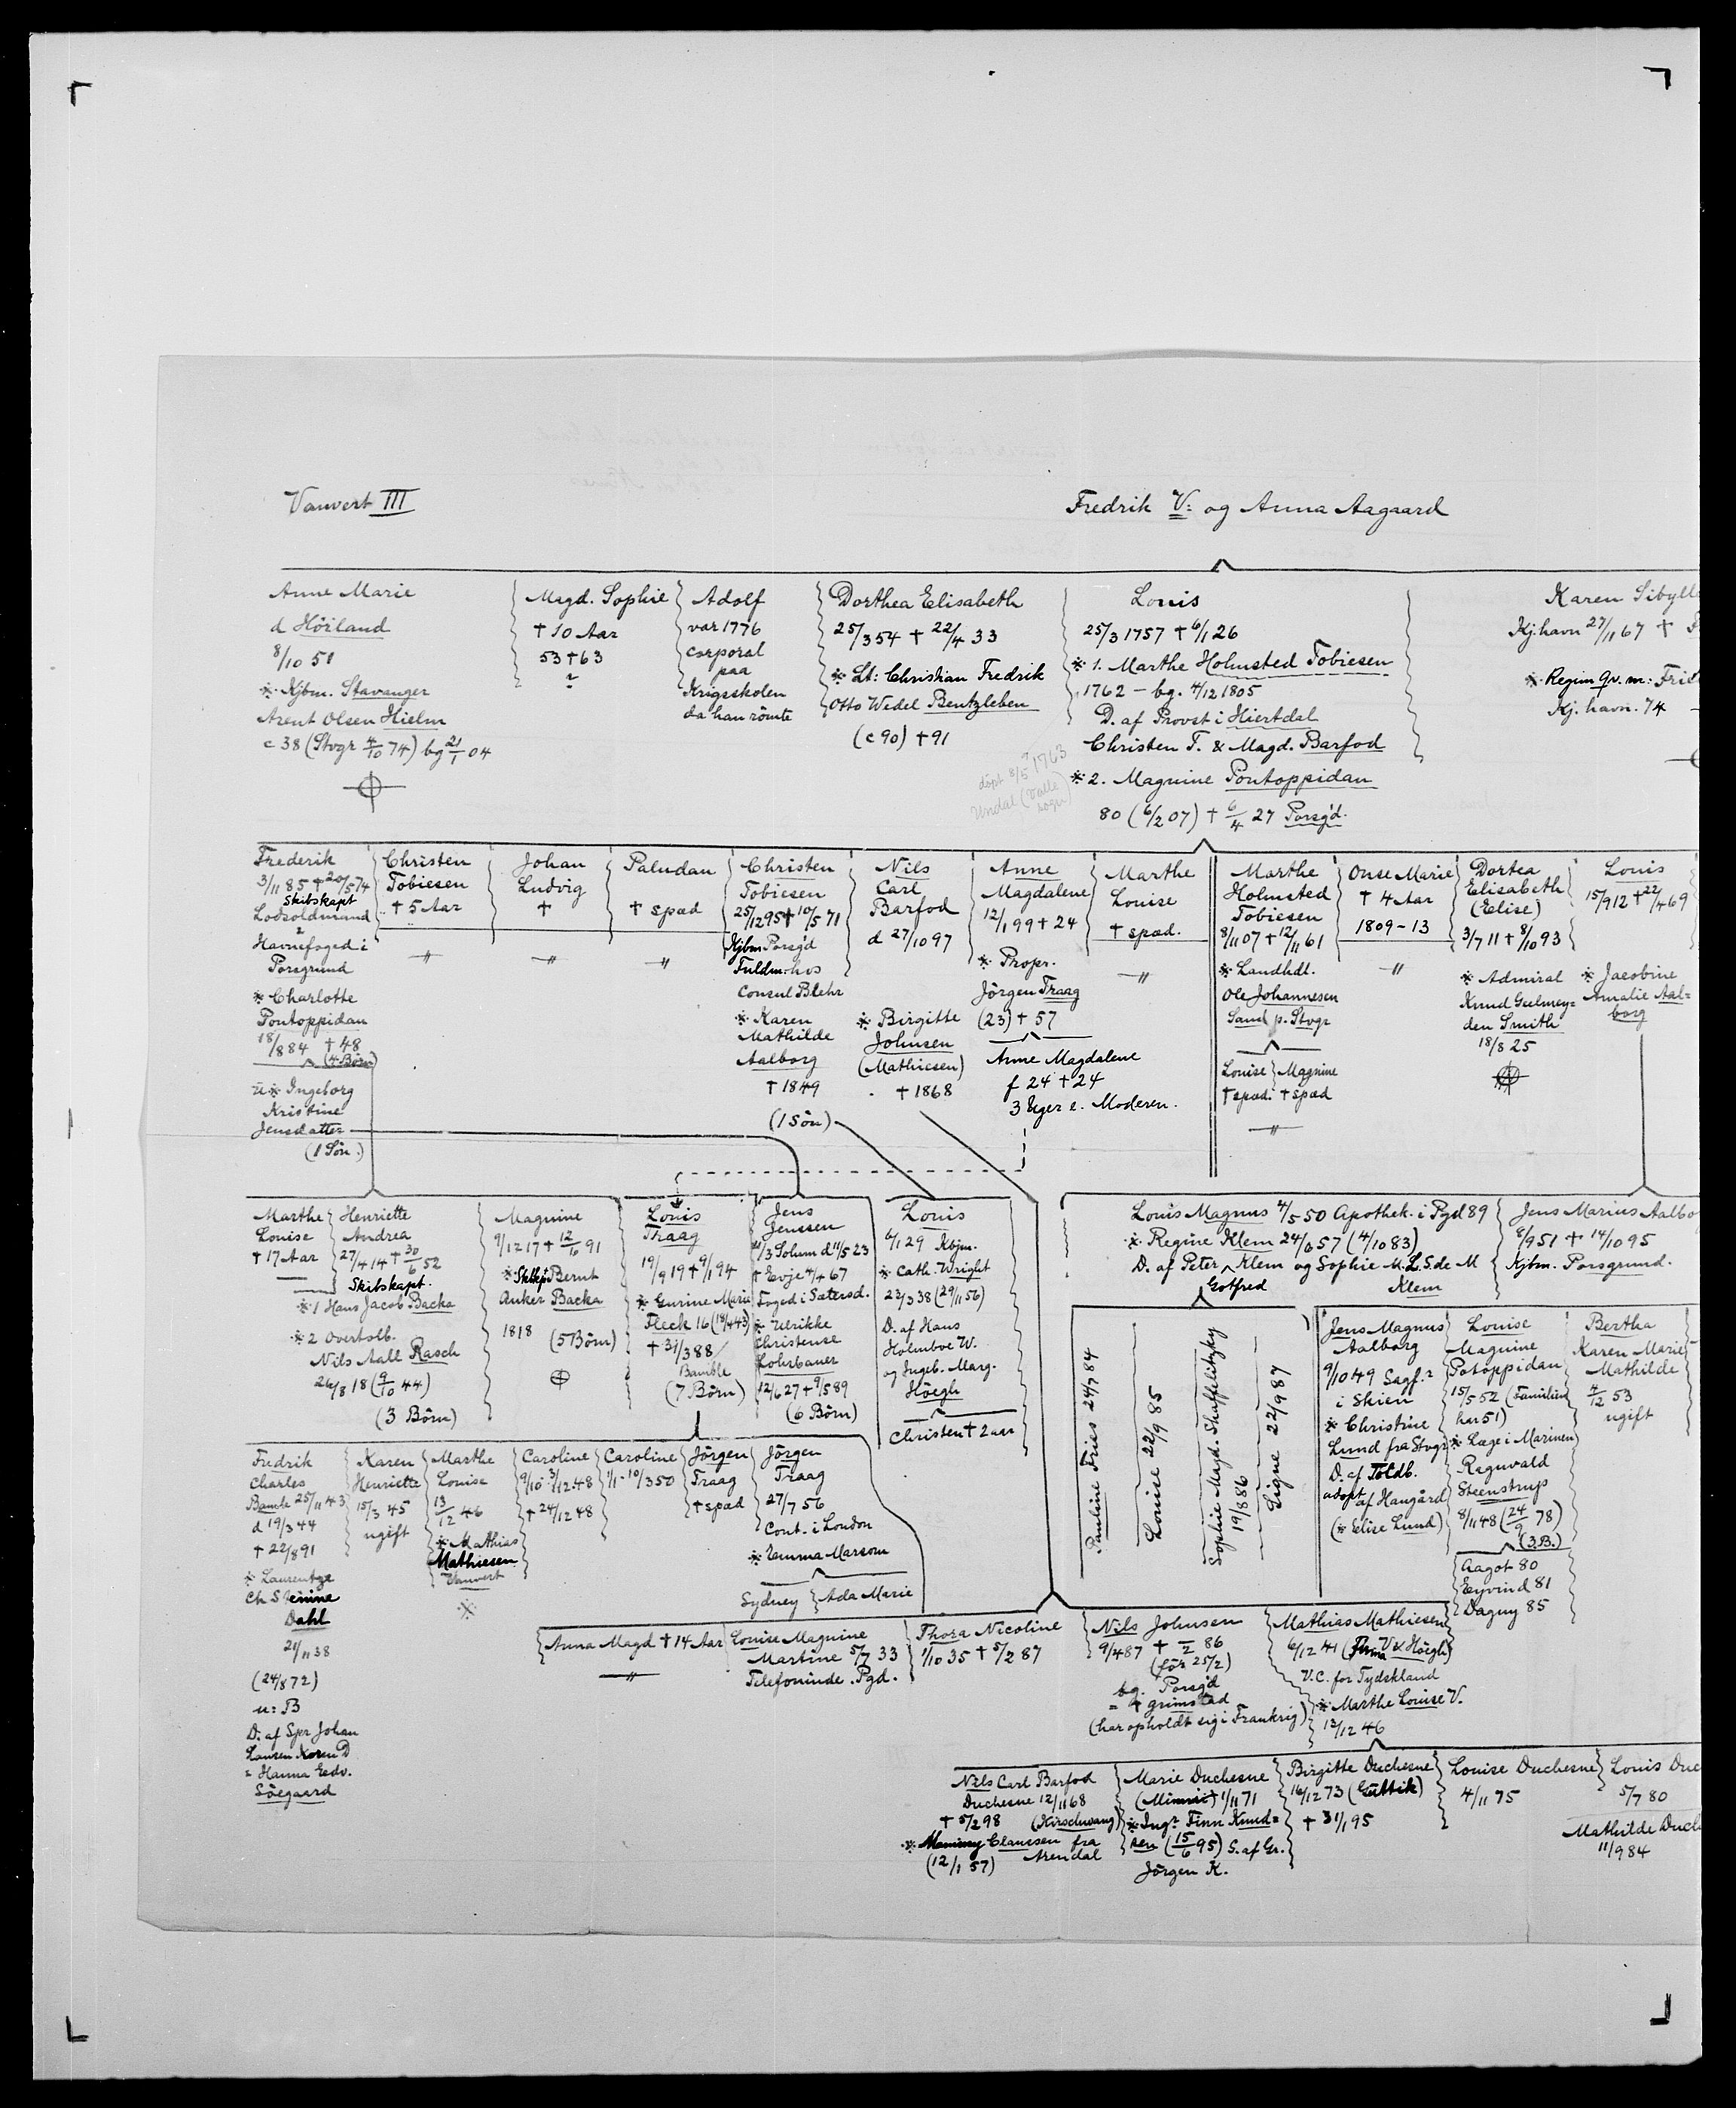 Vauvert III
Fredrik V: og Anna Aagaard
Anne Marie
d Höiland
8/10 51
※ Kjbm. Stavanger
Arent Olsen Hielm
c 38 (Stvgr 4/10 74) bg 21/1 04
Magd. Sophie
† 10 Aar
53 † 63
Adolf
var 1776
corporal
paa
Krigsskolen
da han römte
Dorthea Elisabeth
25/3 54 † 22/4 33
※ Lt: Christian Fredrik
Otto Wedel Bentzleben
(c 90) † 91
Louis
25/3 1757 † 6/1 26
※ 1. Marthe Holmsted Tobiesen
1762 – bg. 4/12 1805
D. af Provst i Hiertdal
Christen T. & Magd. Barfod
döpt 8/5 1763
Undal (Valle sogn)
※ 2. Magnine Pontoppidan
80 (6/2 07) † 6/4 27 Porsg'd.
Karen Sibyll
Kj.havn 27/11 67 †
※ Regim qv. m:
Kj. havn. 74
Frederik
3/11 85 † 20/5 74
Skibskapt
Lodsoldmand
Havnefoged i
Porsgrund
※ Charlotte
Pontoppidan
18/8 84 † 48
(4 Börn)
u※ Ingeborg
Kristine
Jensdatter
(1 Sön.)
Christen
Tobiesen
† 5 Aar
"
Johan
Ludvig
†
"
Paludan
† spæd
"
Christen
Tobiesen
25/12 95 † 10/5 71
Kjbm Porsg'd
Fuldm: hos
Consul Blehr
※ Karen
Mathilde
Aalborg
† 1849
(1 Sön)
Nils
Carl
Barfod
d 27/10 97
※ Birgitte
Johnsen
(Mathiesen)
† 1868
Anne
Magdalene
12/1 99 † 24
※ Propr.
Jörgen Traag
(23) † 57
Anne Magdalene
f 24 † 24
3 Uger e. Moderen.
Marthe
Louise
† spæd.
"
Marthe
Holmsted
Tobiesen
8/11 07 † 12/11 61
※ Landhdl.
Ole Johannesen
Sand p. Stvgr
Louise } Magnine
† spæd. † spæd
"
Onse Marie
† 4 Aar
1809–13
"
Dortea
Elisabeth
(Elise)
3/7 11 † 8/10 93
※ Admiral
Knud Geelmey=
den Smith
18/8 25
Louis
15/9 12 † 22/4 69
※ Jacobine
Amalie Aal=
borg
Marthe
Louise
† 17 Aar
Henriette
Andrea
27/4 14 † 30/6 52
Skibskapt.
※ 1 Hans Jacob Backa
※ 2 Overtolb.
Nils Aall Rasch
26/8 18 (9/10 44)
(3 Börn)
Magnine
9/12 17 † 12/6 91
※ Skbkpt Bernt
Anker Backa
1818 (5 Börn)
Louis
Traag
19/9 19 † 9/1 94
※ Gurine Marie
Fleck 16 (18/4 43)
† 31/3 88
Bamble
(7 Börn)
Jens
Jenssen
21/3 Solum d 11/5 23
† Evje 4/4 67
Foged i Sætersd.
※ Ulrikke
Christense
Lohrbauer
12/6 27 † 9/5 89
(6 Börn)
Louis
6/1 29 Kbjm.
※ Cath. Wright
23/3 38 (29/11 56)
D. af Hans
Holmboe W.
og Ingeb. Marg.
Höegh
Christen † 2 aar
Louis Magnus 4/5 50 Apothek. i Pgd 89
※ Regine Klem 24/6 57 (4/10 83)
D. af Peter Klem og Sophie M. L. S. de M
Gotfred Klem
Jens Marius Aalbo
8/9 51 † 14/10 95
Kjbm. Porsgrund.
Pauline Fries 24/7 84
Louise 22/9 85
Sophie Magd. Shaffelitzky
19/8 86
Signe 22/9 87
Jens Magnus
Aalborg
9/10 49 Sagf.r
i Skien
※ Christine
Lund fra Stvgr
D. af Toldb.
adopt af Haugård
(※ Elise Lund)
Louise
Magnine
Potoppidan
15/5 52 (Familien
har 51)
※ Læge i Marinen
Regnvald
Steenstrup
8/11 48 (24/9 78)
(3 B.)
Aagot 80
Eyvind 81
Dagny 85
Bertha
Karen Marie
Mathilde
4/12 53
ugift
Fredrik
Charles
Bamle 25/11 43
d 19/3 44
† 22/8 91
※ Laurentze
Ch Stenine
Dahl
21/11 38
(24/8 72)
u: B
D. af Spr Johan
Lansen Karen D
= Hanna Eedv.
Söegaard
Karen
Henriette
15/3 45
ugift
Marthe
Louise
13/12 46
※ Mathias
Mathiesen
Vauvert
※
Caroline
9/10 – 3/12 48
† 24/12 48
Caroline
1/1 – 10/3 50
Jörgen
Traag
† spæd
Jörgen
Traag
27/7 56
Cont. i London
※ Emma Marsom
Sydney } Ada Marie
Anna Magd † 14 Aar
"
Louise Magnine
Martine 5/7 33
Telefoninde. Pgd.
Thora Nicoline
1/10 35 † 5/2 87
Nils Johnsen
9/4 87 † –/2 86
(för 25/2)
bg. Porsg'd
= 4 grimstad
(har opholdt sig i Frankrig)
Mathias Mathiesen
6/12 41 (Firma V & Höegh)
V.C. for Tydskland
※ Marthe Louise V.
13/12 46
Nils Carl Barfod
Duchesne 12/11 68
† 5/2 98 (Kirschwang)
※ Clausen fra
(12/1 57) Arendal
Marie Duchesne
(Minnie) 1/11 71
※ Ing.r Finn Knud=
sen (15/6 95) S. af Gr.
Jörgen K.
Birgitte Duchesne
16/12 73 (Gittik)
† 31/1 95
Louise Duchesne
4/11 75
Louis Duc
5/7 80
Mathilde Duch
11/9 84